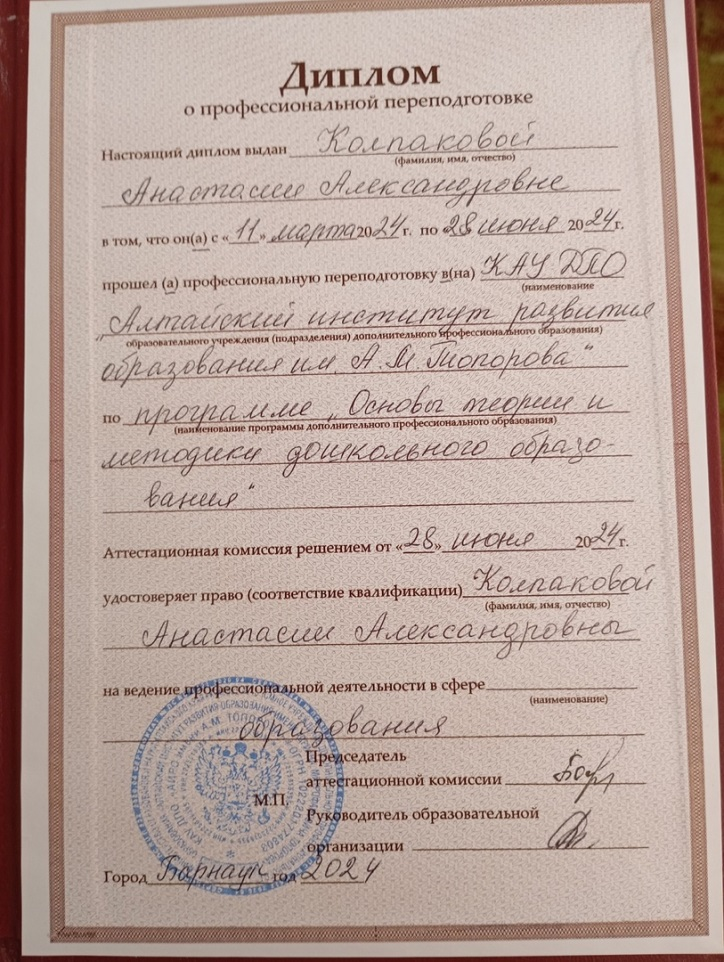 Диплом
о профессиональной переподготовке
Настоящий диплом выдан Колпаковой
(фамилия, имя, отчество)
Анастасии Александровне
в том, что он(а) с «11» марта 2024 г. по 28 июня 2024 г.
прошел (а) профессиональную переподготовку в(на) КАУ ДПО
(наименование
"Алтайский институт развития
образовательного учреждения (подразделения) дополнительного профессионального образования)
образования им. А.М. Топорова"
по программе „Основы теории и
(наименование программы дополнительного профессионального образования)
методики дошкольного образо-
вания"
Аттестационная комиссия решением от «28» июня 2024 г.
удостоверяет право (соответствие квалификации) Колпаковой
(фамилия, имя, отчество)
Анастасии Александровны
на ведение профессиональной деятельности в сфере
(наименование)
образования
Председатель
аттестационной комиссии
М.П.
Руководитель образовательной
организации
Город Барнаул год 2024